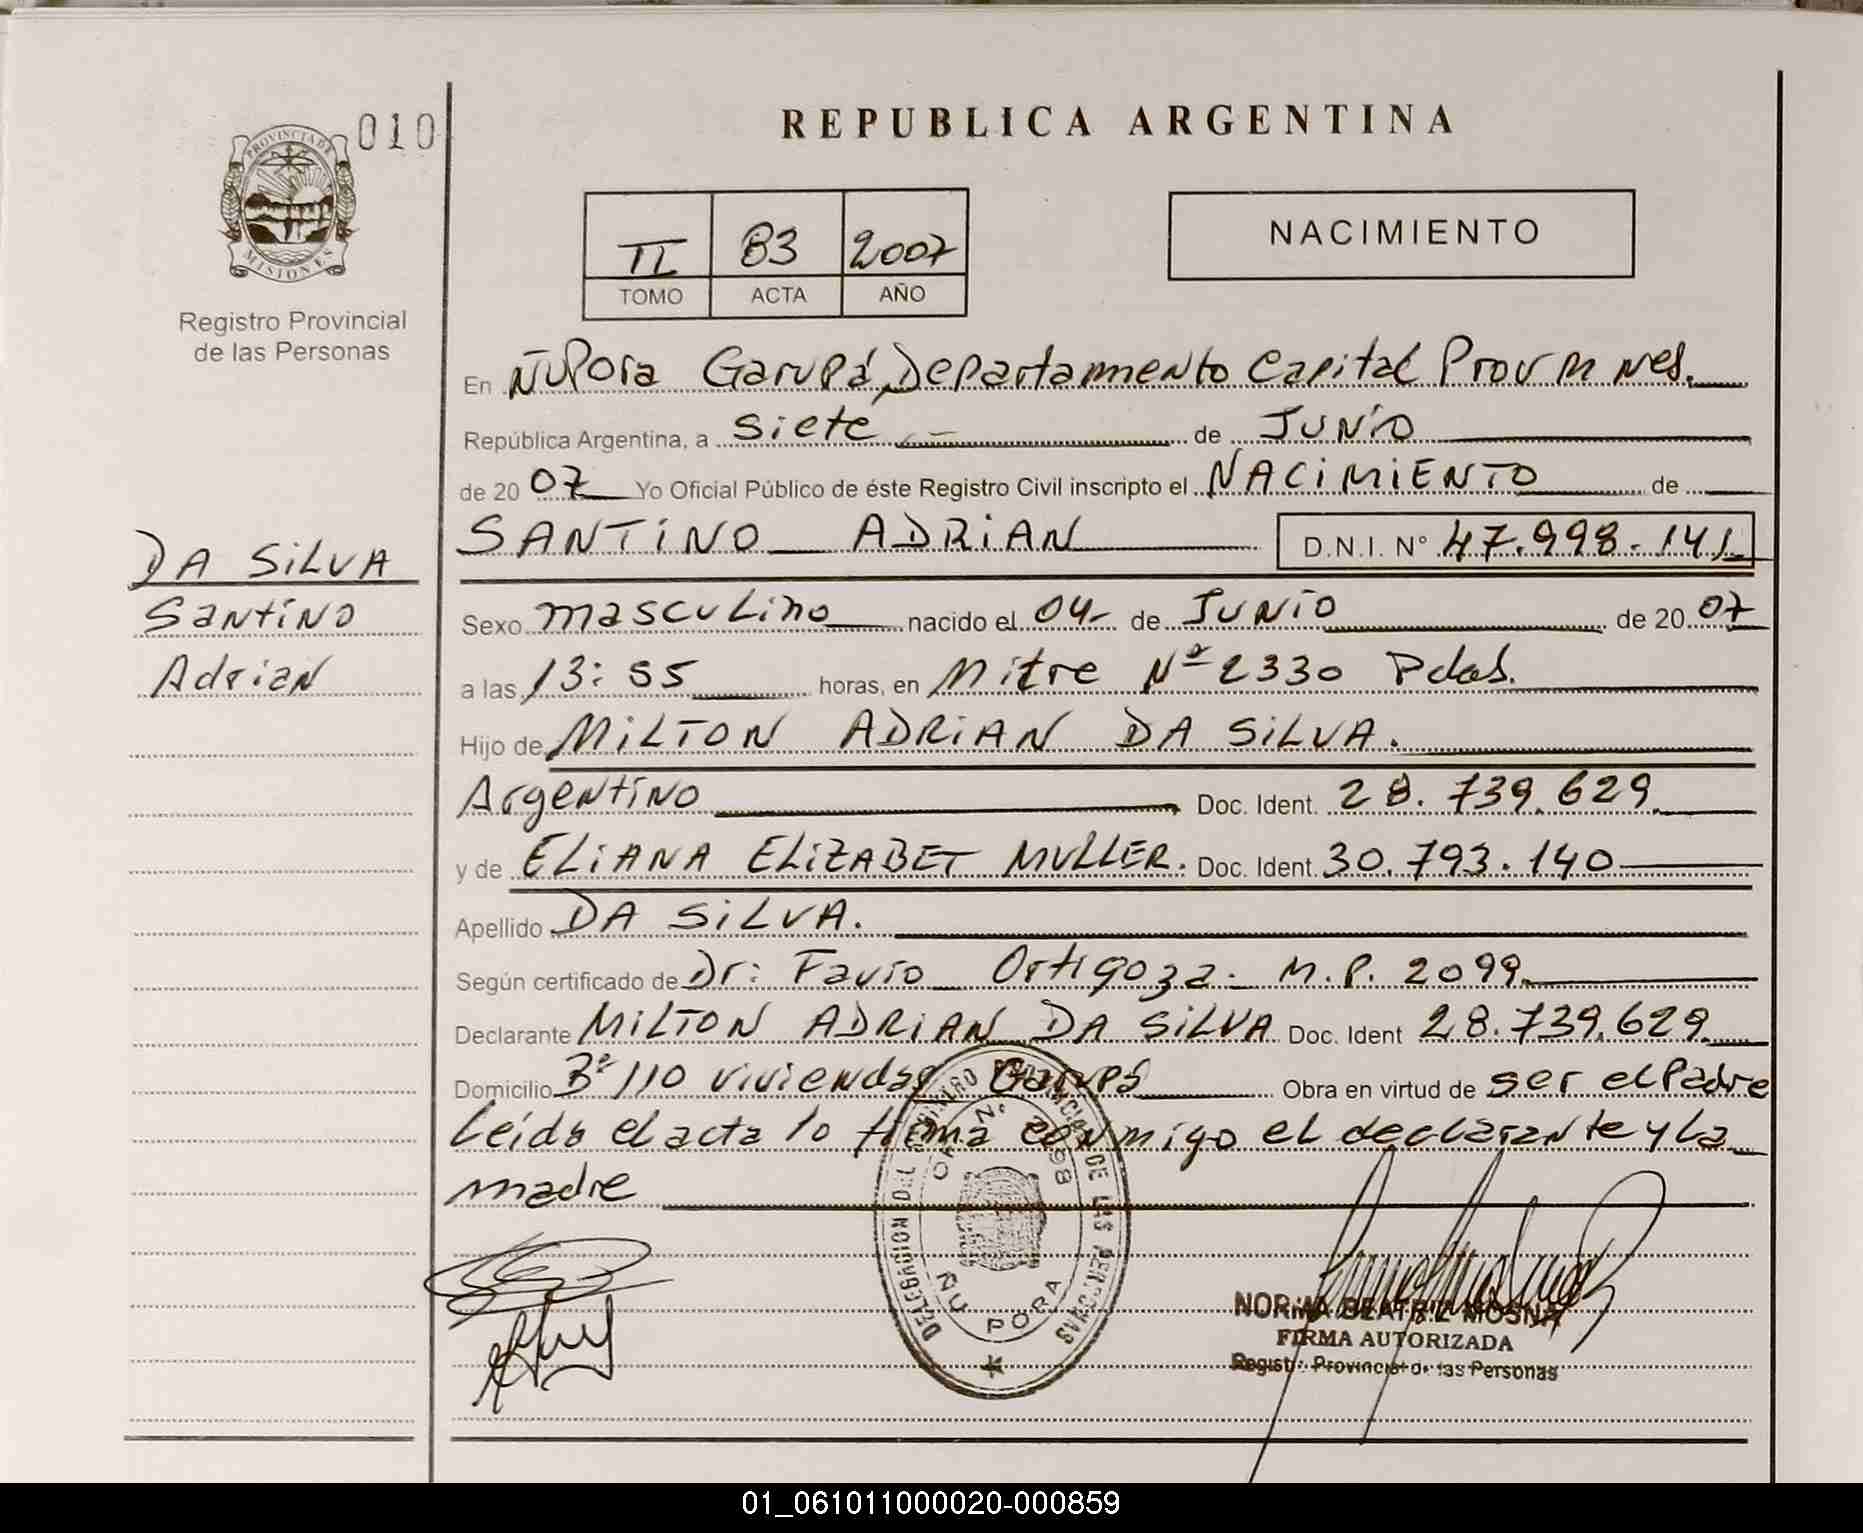 010
PROVINCIA DE
MISIONES
Registro Provincial
de las Personas
REPUBLICA ARGENTINA
II 83 2007
TOMO ACTA AÑO
NACIMIENTO
En ÑuPora Garupá, Departamento Capital Prov M nes.
República Argentina, a siete de Junio
de 2007 Yo Oficial Público de éste Registro Civil inscripto el NACIMIENTO de
SANTINO ADRIAN D.N.I. N° 47.998.141
DA SILVA
Santino
Adrian
Sexo masculino nacido el 04 de Junio de 2007
a las 13:55 horas, en Mitre Nº 2330 Pdas.
Hijo de MILTON ADRIAN DA SILVA.
Argentino Doc. Ident. 28.739.629
y de ELIANA ELIZABET MULLER. Doc. Ident. 30.793.140
Apellido DA SILVA.
Según certificado de Dr: Favio Ortigoza. M.P. 2099
Declarante MILTON ADRIAN DA SILVA Doc. Ident 28.739.629
Domicilio Bº 110 viviendas Garupá Obra en virtud de ser el Padre
Leída el acta lo firma conmigo el declarante y La
madre
DELEGACION DEL REGISTRO PROVINCIAL DE LAS PERSONAS
ÑU PORA
NORMA BEATRIZ MOSNA
FIRMA AUTORIZADA
Registro Provincial de las Personas
01_061011000020-000859